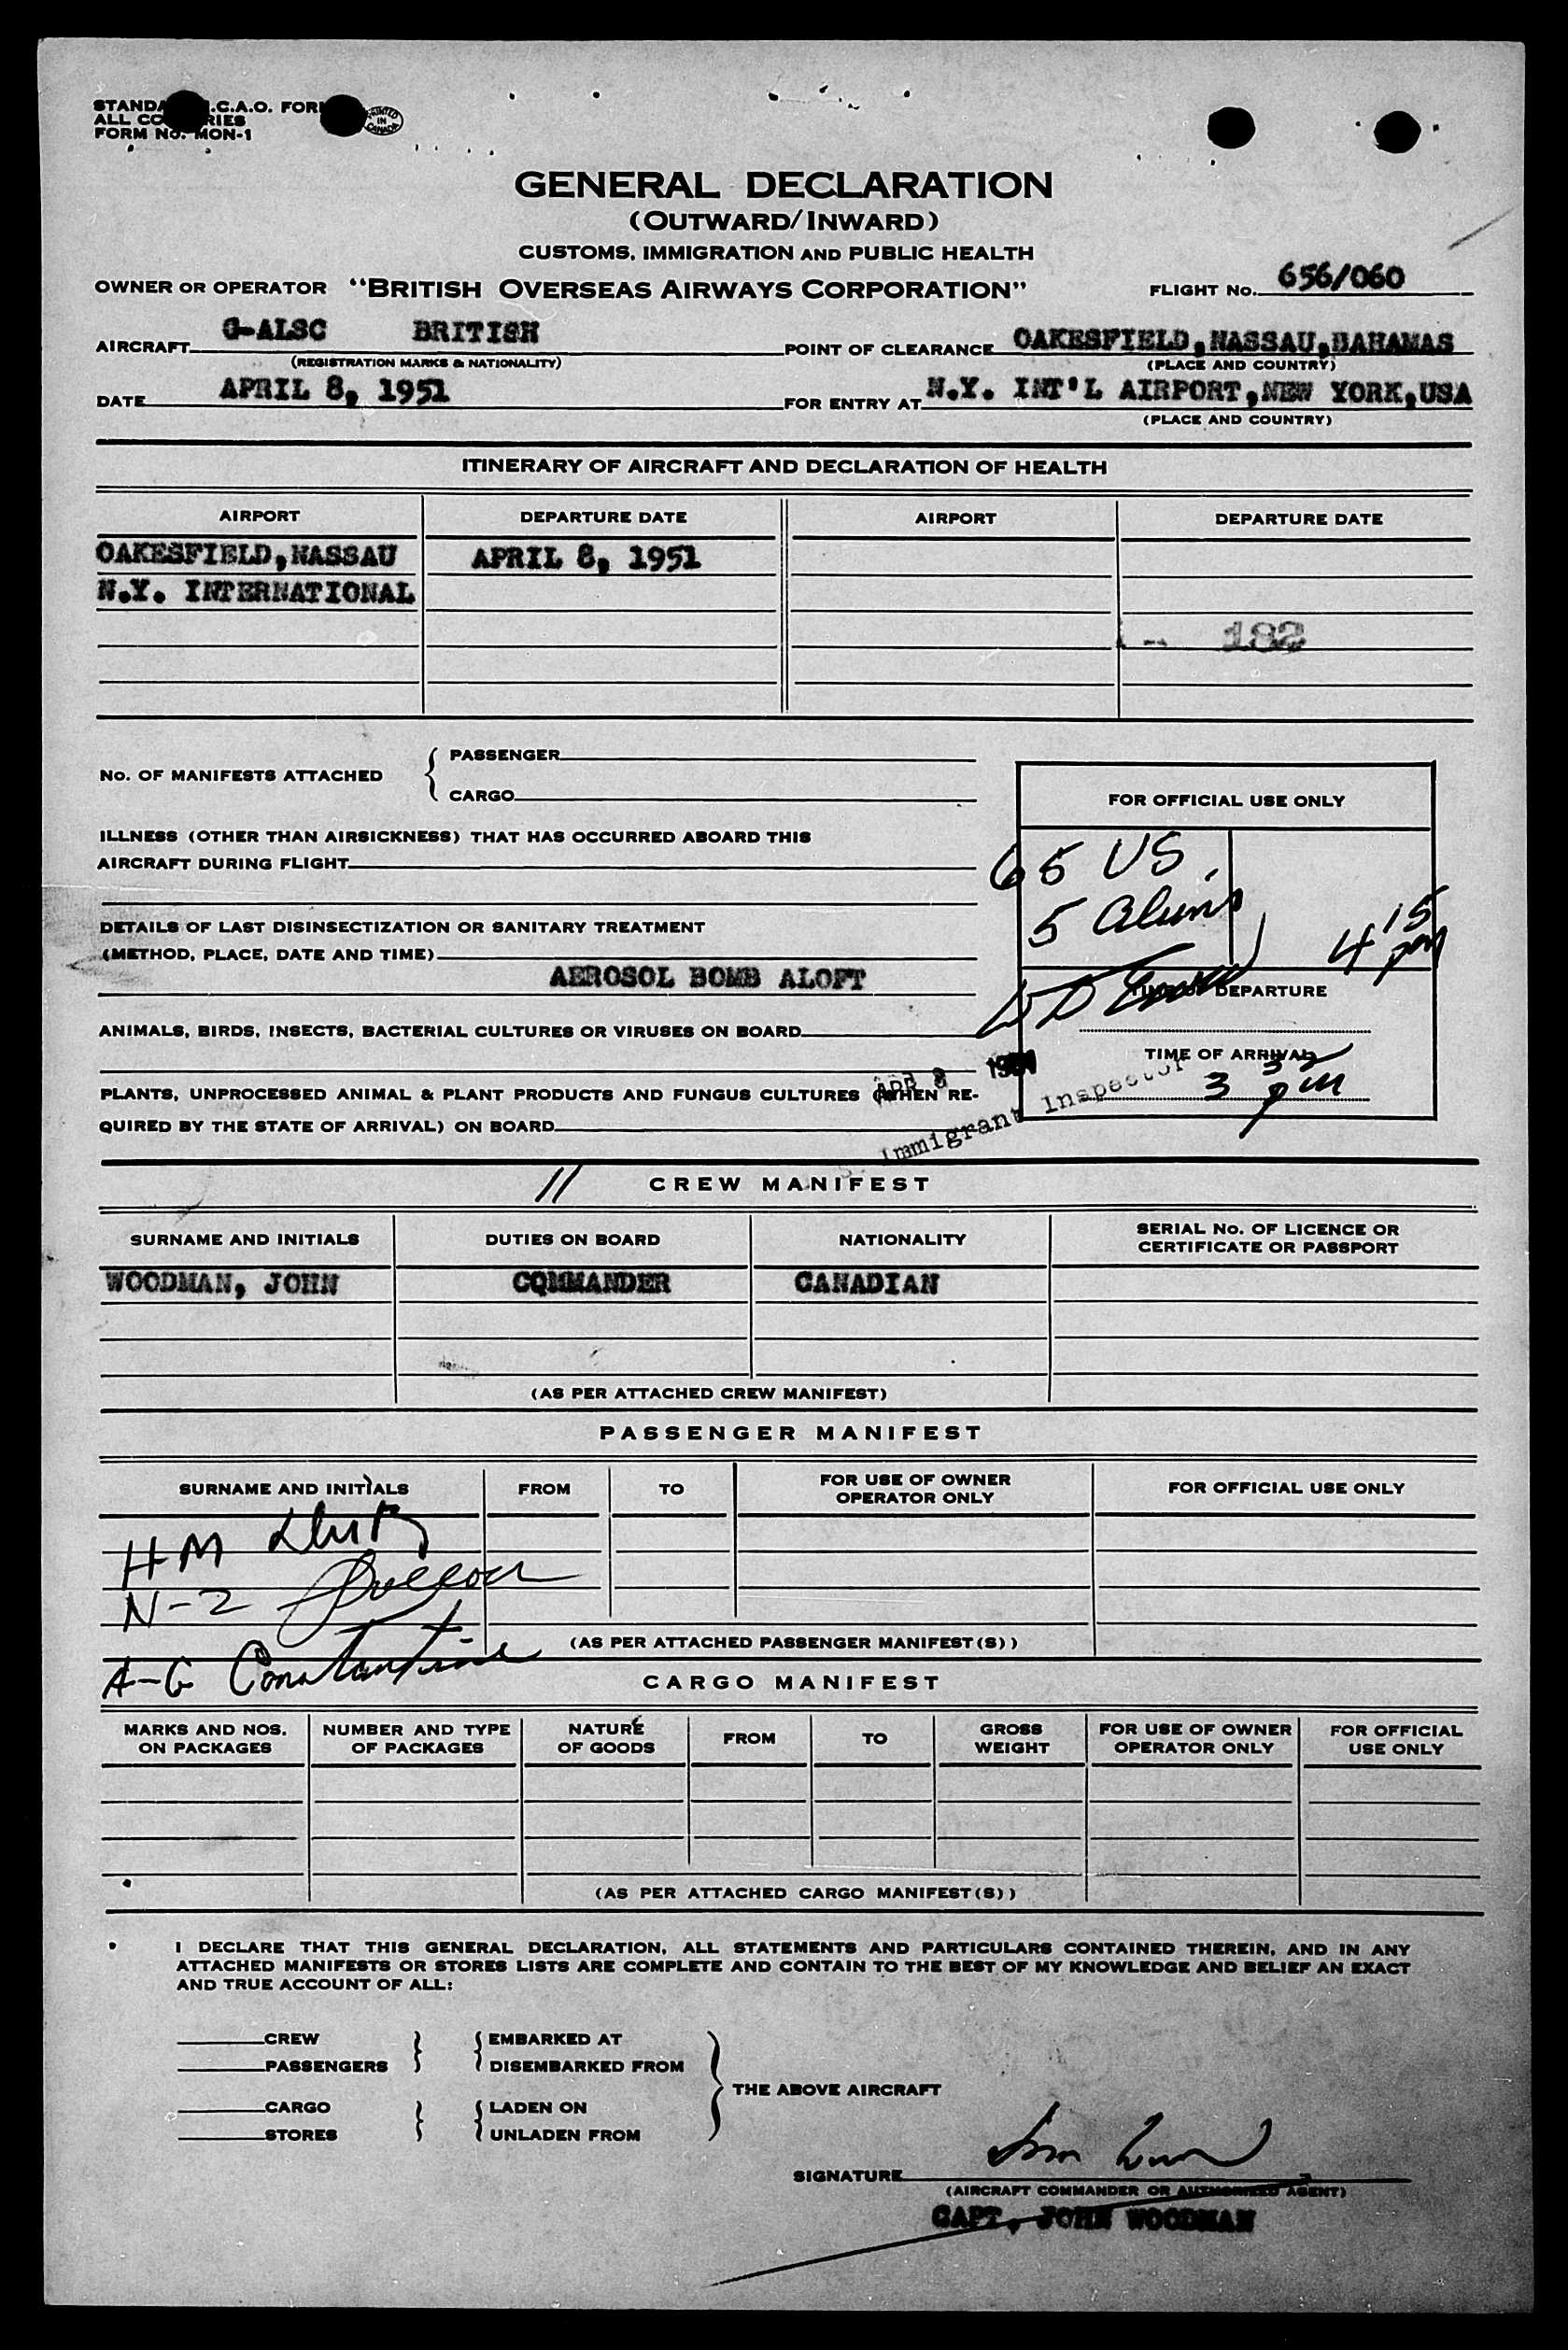 STANDA .C.A.O. FOR
ALL CO RIES
FORM NO. MON-1
PRINTED IN CANADA
GENERAL DECLARATION
(OUTWARD/INWARD)
CUSTOMS, IMMIGRATION AND PUBLIC HEALTH
OWNER OR OPERATOR "BRITISH OVERSEAS AIRWAYS CORPORATION" FLIGHT NO. 656/060
AIRCRAFT G-ALSC BRITISH POINT OF CLEARANCE OAKESFIELD, NASSAU, BAHAMAS
(REGISTRATION MARKS & NATIONALITY) (PLACE AND COUNTRY)
DATE APRIL 8, 1951 FOR ENTRY AT N.Y. INT'L AIRPORT, NEW YORK, USA
(PLACE AND COUNTRY)
ITINERARY OF AIRCRAFT AND DECLARATION OF HEALTH
AIRPORT DEPARTURE DATE AIRPORT DEPARTURE DATE
OAKESFIELD, NASSAU APRIL 8, 1951
N.Y. INTERNATIONAL
182
NO. OF MANIFESTS ATTACHED { PASSENGER
CARGO
FOR OFFICIAL USE ONLY
ILLNESS (OTHER THAN AIRSICKNESS) THAT HAS OCCURRED ABOARD THIS
AIRCRAFT DURING FLIGHT
65 US
5 aliens
4 15 pm
DETAILS OF LAST DISINSECTIZATION OR SANITARY TREATMENT
(METHOD, PLACE, DATE AND TIME)
AEROSOL BOMB ALOFT
TIME OF DEPARTURE
ANIMALS, BIRDS, INSECTS, BACTERIAL CULTURES OR VIRUSES ON BOARD
TIME OF ARRIVAL
3 32 pm
APR 8 1951
Immigrant Inspector
PLANTS, UNPROCESSED ANIMAL & PLANT PRODUCTS AND FUNGUS CULTURES (WHEN RE-
QUIRED BY THE STATE OF ARRIVAL) ON BOARD
11 CREW MANIFEST
SURNAME AND INITIALS DUTIES ON BOARD NATIONALITY SERIAL NO. OF LICENCE OR
CERTIFICATE OR PASSPORT
WOODMAN, JOHN COMMANDER CANADIAN
(AS PER ATTACHED CREW MANIFEST)
PASSENGER MANIFEST
SURNAME AND INITIALS FROM TO FOR USE OF OWNER
OPERATOR ONLY FOR OFFICIAL USE ONLY
H M
N-2
(AS PER ATTACHED PASSENGER MANIFEST(S))
A-G Constantine
CARGO MANIFEST
MARKS AND NOS.
ON PACKAGES NUMBER AND TYPE
OF PACKAGES NATURE
OF GOODS FROM TO GROSS
WEIGHT FOR USE OF OWNER
OPERATOR ONLY FOR OFFICIAL
USE ONLY
(AS PER ATTACHED CARGO MANIFEST(S))
I DECLARE THAT THIS GENERAL DECLARATION, ALL STATEMENTS AND PARTICULARS CONTAINED THEREIN, AND IN ANY
ATTACHED MANIFESTS OR STORES LISTS ARE COMPLETE AND CONTAIN TO THE BEST OF MY KNOWLEDGE AND BELIEF AN EXACT
AND TRUE ACCOUNT OF ALL:
CREW } { EMBARKED AT
PASSENGERS DISEMBARKED FROM
} THE ABOVE AIRCRAFT
CARGO } { LADEN ON
STORES UNLADEN FROM
SIGNATURE
(AIRCRAFT COMMANDER OR AUTHORISED AGENT)
CAPT. JOHN WOODMAN